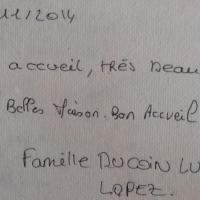 11/2014
accueil, très beau
Belles Maison. Bon Accueil
Famille DUCOIN LU
LOPEZ.